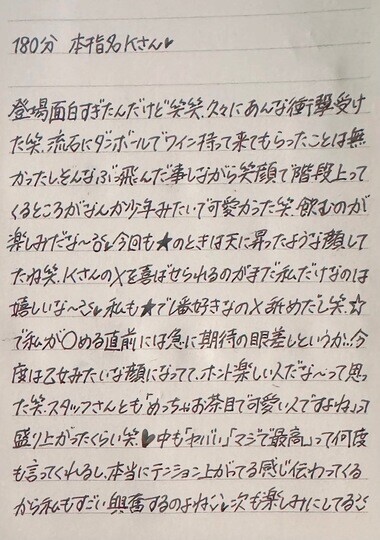 180分 本指名Kさん♥
登場面白すぎたんだけど笑笑.久々にあんな衝撃受け
た笑.流石にダンボールでワイン持って来てもらったことは無
かったし、そんなぶっ飛んだ事しながら笑顔で階段上って
くるところがなんか少年みたいで可愛かった笑.飲むのが
楽しみだな〜 今回も★のときは天に昇ったような顔して
たね笑.KさんのXを喜ばせられるのがまだ私だけなのは
嬉しいな〜 私も★で1番好きなのX舐めだし笑.☆
で私が○める直前には急に期待の眼差しというか..今
度は乙女みたいな顔になってて、ホント楽しい人だな〜って思っ
た笑.スタッフさんとも「めっちゃお茶目で可愛い人ですよね」って
盛り上がったくらい笑♥中も「ヤバい」「マジで最高」って何度
も言ってくれるし、本当にテンション上がってる感じ伝わってくる
から私もすごい興奮するのよね 次も楽しみにしてる